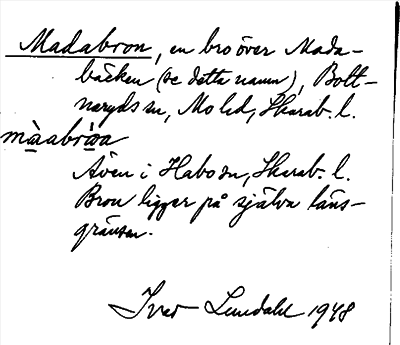 Madabron, en bro över Mada-
bäcken (se detta namn), Bolt-
naryds sn, Mo hd, Skarab. l.
màabròa
Även i Habo sn, Skarab. l.
Bron ligger på själva läns-
gränsen.
Ivar Lundahl 1948